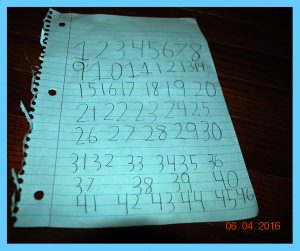 1 2 3 4 5 6 7 8
9 10 11 12 13 14
15 16 17 18 19 20
21 22 23 24 25
26 27 28 29 30
31 32 33 34 35 36
37 38 39 40
41 42 43 44 45 46
06.04.2016